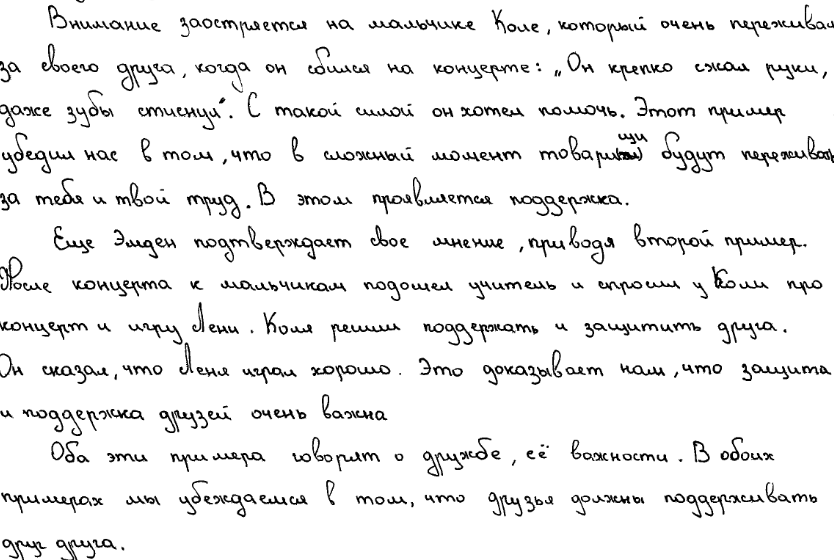 Внимание заостряется на мальчике Коле, который очень переживал
за своего друга, когда он сбился на концерте: „Он крепко сжал руки,
даже зубы стиснул". С такой силой он хотел помочь. Этот пример
убедил нас в том, что в сложный момент товарищи будут переживать
за тебя и твой труд. В этом проявляется поддержка.
Еще Эмден подтверждает свое мнение, приводя второй пример.
После концерта к мальчикам подошел учитель и спросил у Коли про
концерт и игру Лени. Коля решил поддержать и защитить друга.
Он сказал, что Леня играл хорошо. Это доказывает нам, что защита
и поддержка друзей очень важна
Оба эти примера говорят о дружбе, её важности. В обоих
примерах мы убеждаемся в том, что друзья должны поддерживать
друг друга.